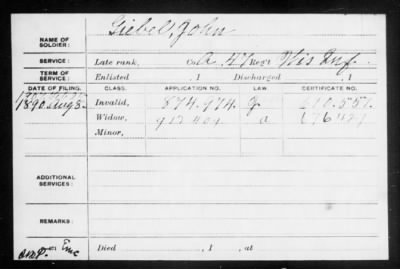 NAME OF SOLDIER: Giebel, John
SERVICE: Late rank, Co. A, 47 Reg't Wis Inf.
TERM OF SERVICE: Enlisted , 1 Discharged , 1
DATE OF FILING. CLASS. APPLICATION NO. LAW. CERTIFICATE NO.
1890 Aug 8 Invalid, 874.774 J.
Widow, a
Minor,
ADDITIONAL SERVICES:
REMARKS:
Died , 1 , at